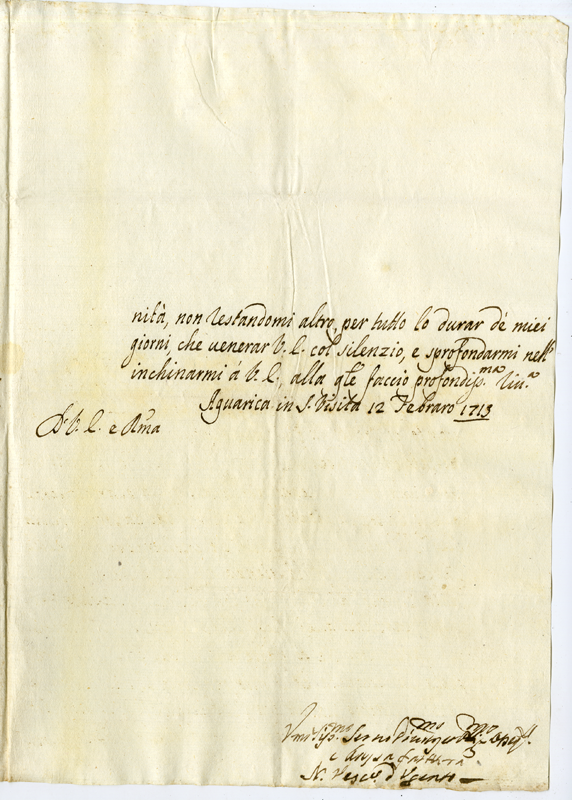 nità, non restandomi altro, per tutto lo durar de' miei
giorni, che venerar V. E. col silenzio, e sprofondarmi nell'
inchinarmi à V. E., alla qle faccio profondiss.ma riv.a
Aquarica in S. Visita 12 Febraro 1713
D. V. E. e Rma
Vmiliss.mo
e
N. Vesco. d'Vgento